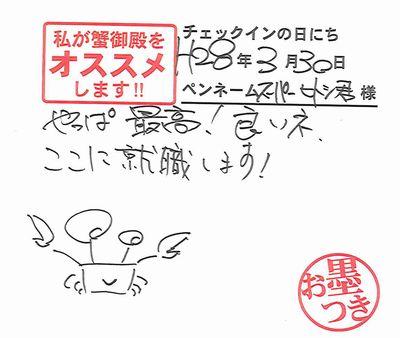 私が蟹御殿を
オススメ
します!!
チェックインの日にち
H28年3月30日
ペンネーム スーパーヒトシ君 様
やっぱ最高！良いネ、
ここに就職します！
お墨つき